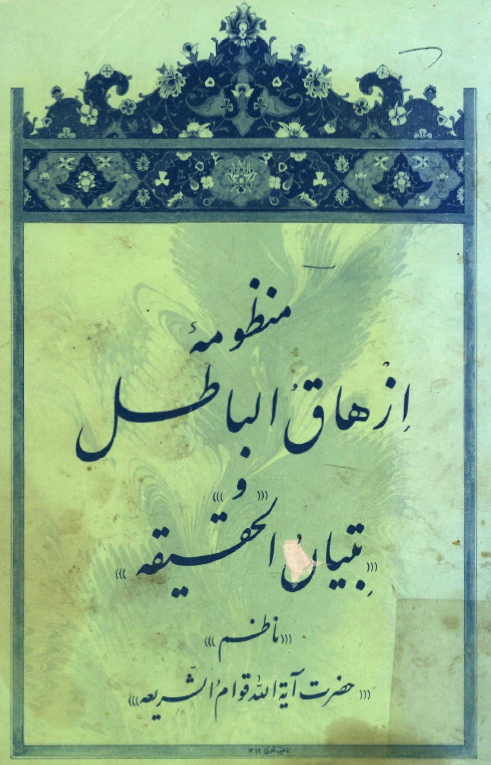 منظومهٔ
اِزهاقُ الباطل
((( و )))
(((تِبیانُ الحقیقه)))
(((ناظم)))
(((حضرت آیة الله قوام الشریعه)))